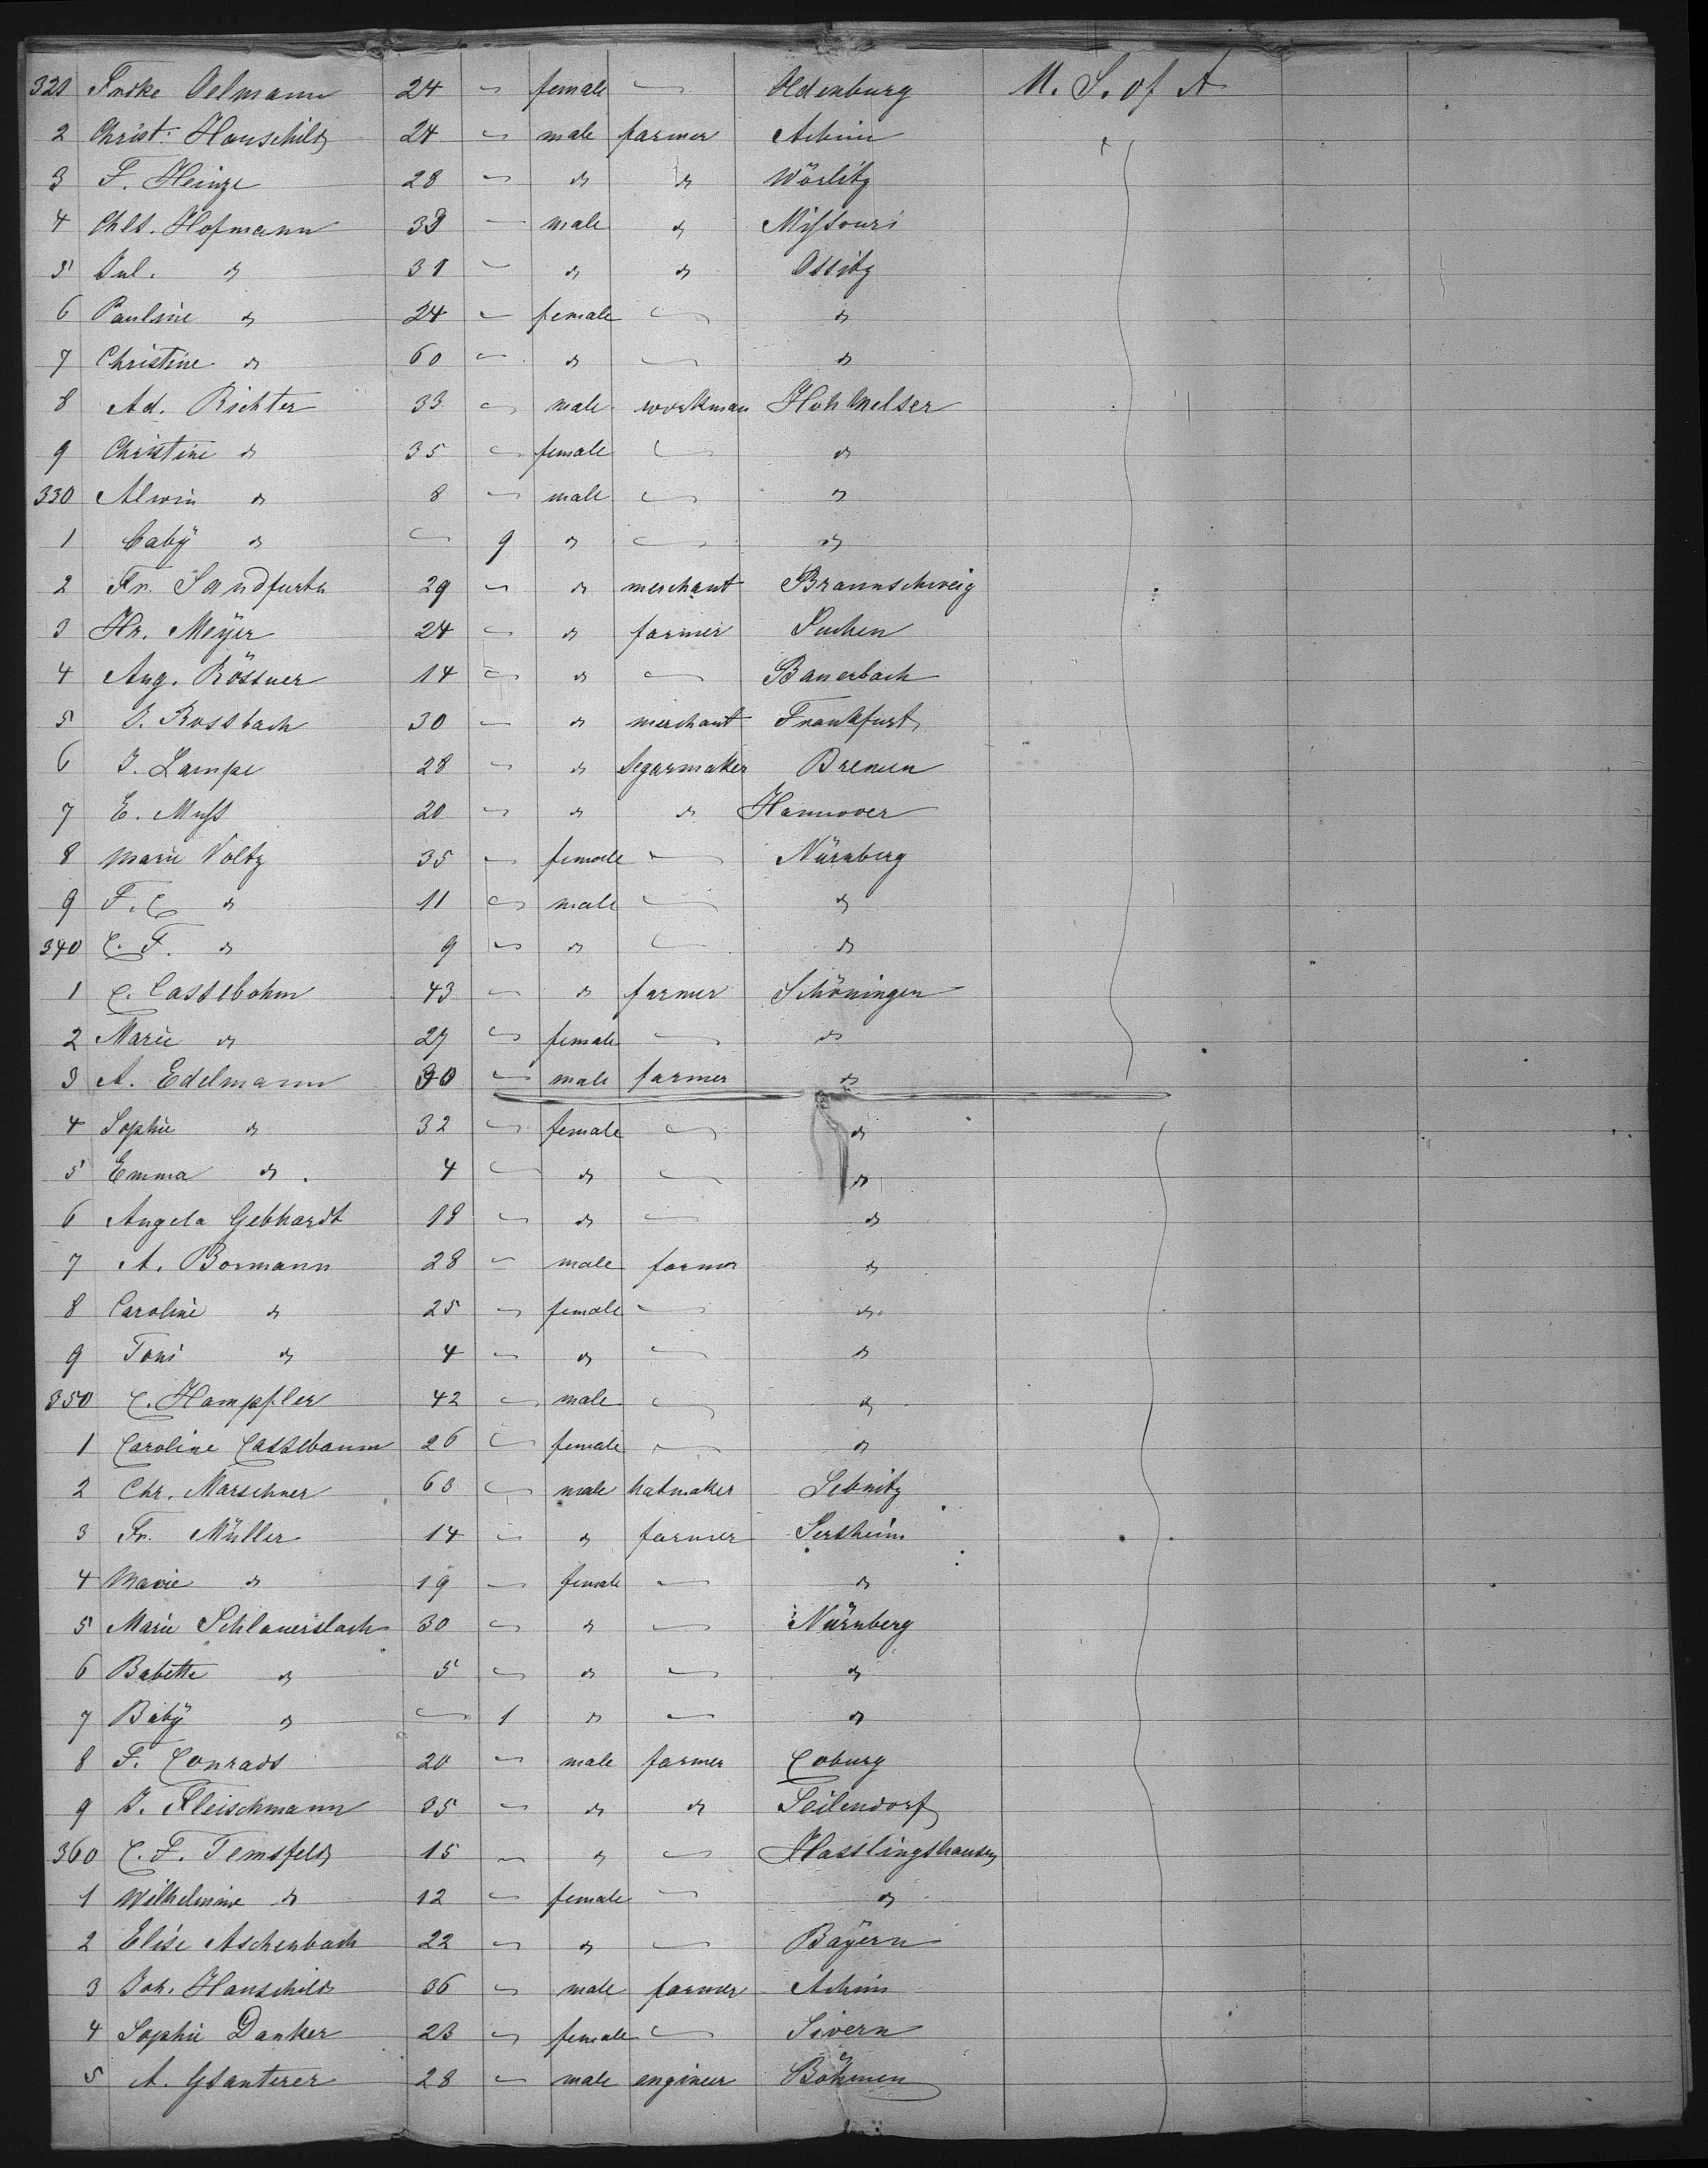 321 Oelmann 24 — female — Oldenburg U. S. of A
2 Christ. Hauschild 24 — male farmer Achim
3 F. Heinze 28 — " " Wörlitz
4 Chls. Hofmann 33 — male " Missouri
5 Jul. " 31 — " " Ossitz
6 Pauline " 24 — female — "
7 Christine " 60 — " — "
8 Ad. Richter 33 — male workman
9 Christine " 35 — female — "
330 Alwin " 8 — male — "
1 Baby " — 9 " — "
2 Fr. Sandfurth 29 — " merchant Braunschweig
3 Hr. Meÿer 24 — " farmer
4 Aug. Rössner 14 — " — Bauerbach
5 J. Rossbach 30 — " merchant Frankfurt
6 J. Lampe 28 — " Segarmaker Bremen
7 E. Muss 20 — " " Hannover
8 Marie Voltz 35 — female — Nürnberg
9 F. C. " 11 — male — "
340 C. F. " 9 — " — "
1 C. Cassebohm 43 — " farmer Schöningen
2 Marie " 27 — female — "
3 A. Edelmann 30 — male farmer "
4 Sophie " 32 — female — "
5 Emma " 4 — " — "
6 Angela Gebhardt 18 — " — "
7 A. Bormann 28 — male farmer "
8 Caroline " 25 — female — "
9 Toni " 4 — " — "
350 C. Hampfler 42 — male — "
1 Caroline Cassebaum 26 — female — "
2 Chr. Marschner 63 — male hatmaker Sebnitz
3 Fr. Müller 14 — " farmer Sersheim
4 Marie " 19 — female — "
5 Marie Schlauersbach 30 — " — Nürnberg
6 Babette " 5 — " — "
7 Babÿ " — 1 " — "
8 F. Conrads 20 — male farmer Coburg
9 J. Fleischmann 35 — " " Seilendorf
360 C. F. Temsfeld 15 — " — Hasslingshausen
1 Wilhelmine " 12 — female — "
2 Elise Aschenbach 22 — " — Baÿern
3 Joh. Hauschild 36 — male farmer Achim
4 Sophie Danker 23 — female — Sivern
5 A. Gsanterer 28 — male engineer Böhmen